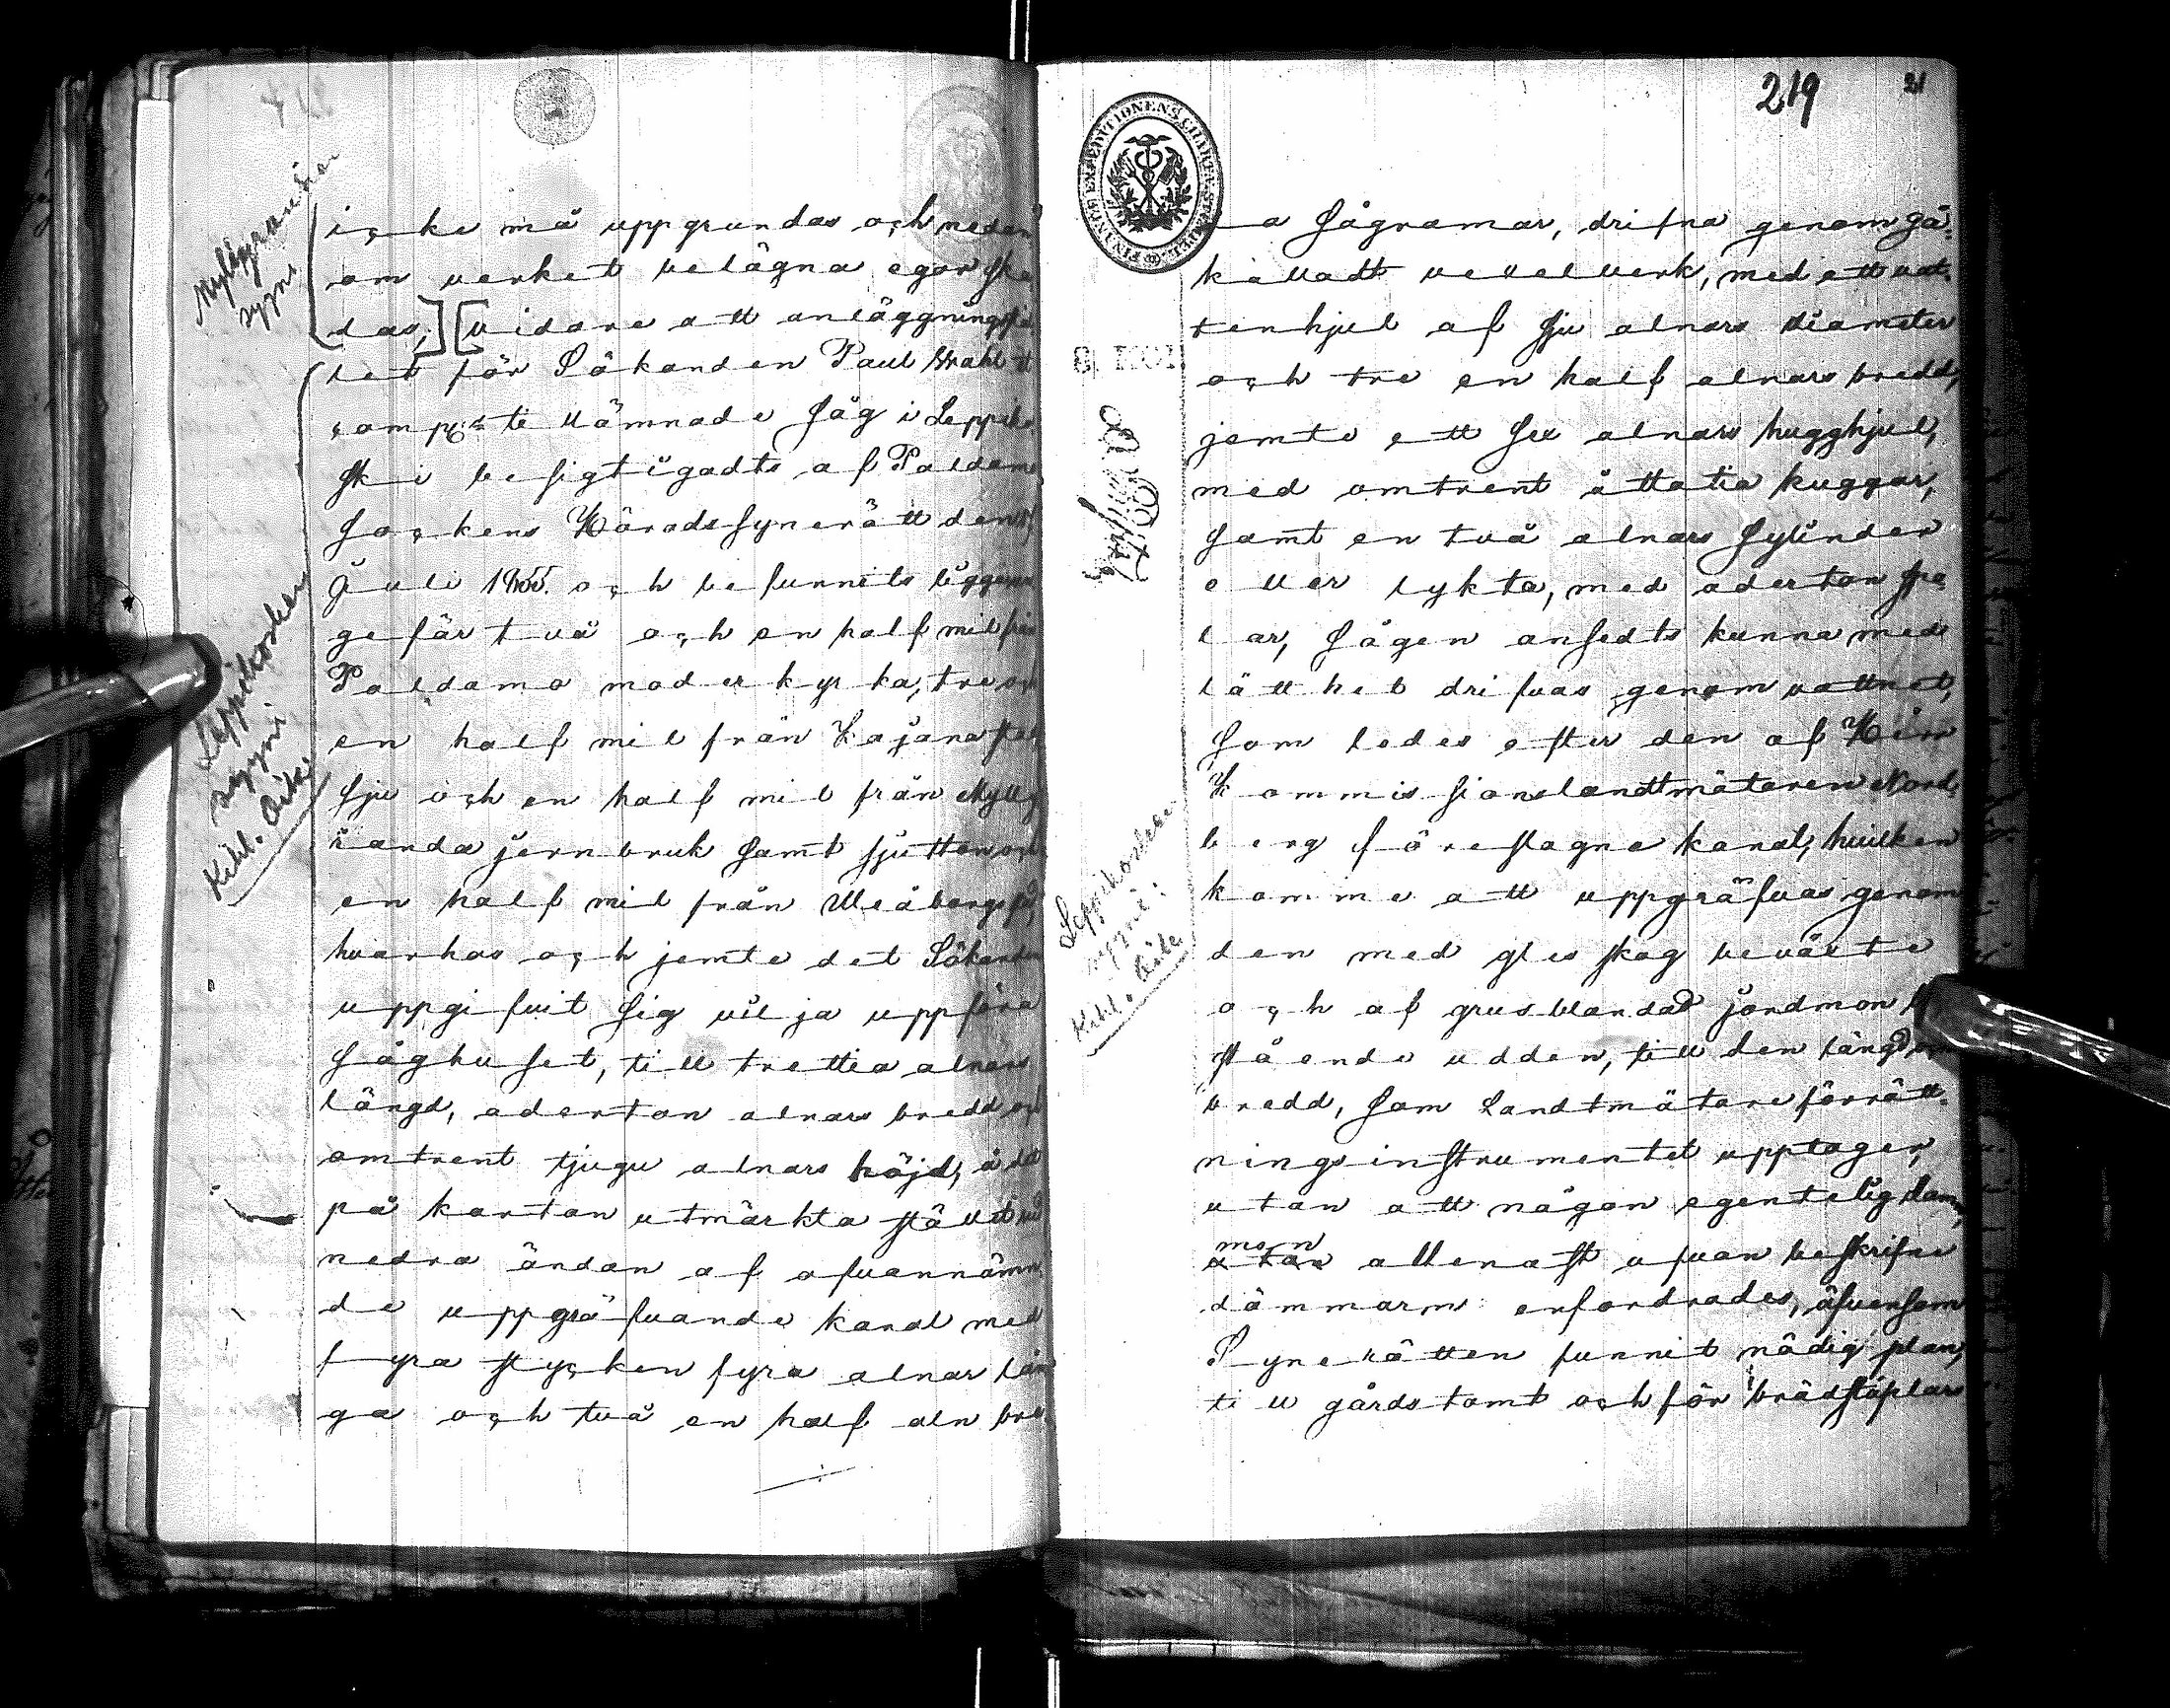 icke må uppgrundas och nedan
om verket belägna egor ska
das; vidare att anläggningsstäl
let för Sökanden Paul Wahl et
comp:s tillämnade såg i Leppiko
ski besigtigadts af Paldamo
Sockens Häradssynerätt den
Juli 1855. och befunnits ligga
gefär två och en half mil från
Paldamo moderkyrka, tre och
en half mil från Kajana stad
sju och en half mil från Mylly
randa jernbruk samt sjutton och
en half mil från Uleåborgs stad,
hvarhos och jemte det Sökanden
uppgifvit sig vilja uppföra
såghuset, till trettio alnars
längd, aderton alnars bredd och
omtrent tjugu alnars höjd, å det
på kartan utmärkta stället vid
nedra ändan af ofvannämn
de uppgräfvande kanal med
fyra stycken fyra alnar lån
ga och två en half aln bre
Leppikosken
syyni
Kihl. Oik.
219
21
FINANS EXPEDITIONENS CHARTÆ
da sågramar, drifna genom så
kalladt vexelverk, med ett vat
tenhjul af sju alnars diameter
och tre en half alnars bredd,
jemte ett sex alnars kugghjul,
med omtrent åttatio kuggar,
samt en två alnars sylinder
eller lykta, med aderton spe
lar, sågen ansedts kunna med
lätthet drifvas genom vattnet,
som ledes efter den af Herr
Kommissionslandtmätaren Nord
berg föreslagne kanal, hvilken
komme att uppgräfvas genom
den med gles skog beväxte
och af grusblandad jordmon be
stående udden, till den längd och
bredd, som Landtmätareförrätt
ningsinstrumentet upptager,
utan att någon egentelig dam,
men
utan allenast ofvan beskrifne
dämmarm erfordrades, äfvensom
Synerätten funnit nödig plan,
till gårdstomt och för brädstaplar
Leppikosken
syyni:
Kihl. Oik.